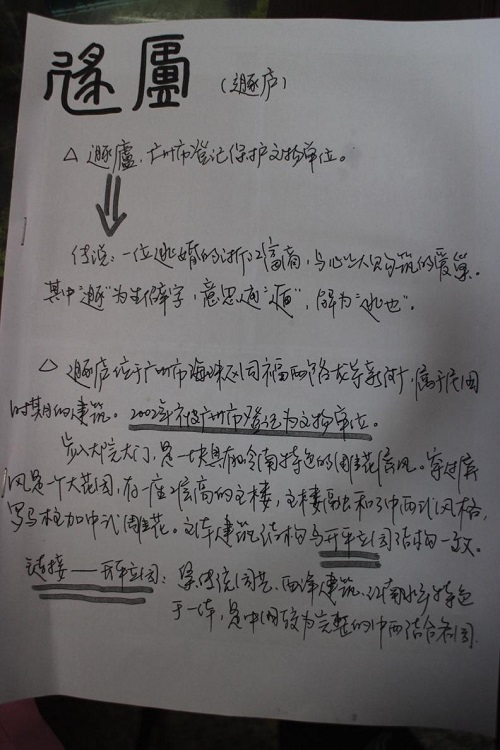 遯廬
(遯庐)
△ 遯廬,广州市登记保护文物单位。
传说:一位逃婚的浙江富商,与心上人所筑的爱巢。
其中“遯”为生僻字,意思通“遁”,解为“逃也”。
△ 遯庐位于广州市海珠区同福西路龙导新街,属于民国
时期的建筑。2002年被广州市登记为文物单位。
步入大院大门,是一块具有岭南特色的围花屏风。穿过屏
风是一个大花园,有一座2层高的主楼,主楼融和了中西式风格,
罗马柱加中式围花。主体建筑结构与开平立园结构一致。
链接——开平立园:集传统园艺、西洋建筑、江南水乡特色
于一体,是中国较为完整的中西结合名园